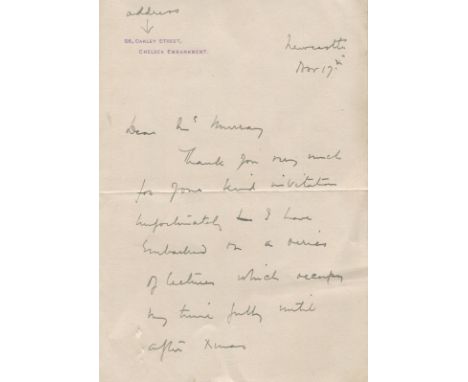 address
56, OAKLEY STREET,
CHELSEA EMBANKMENT.
Newcastle
Nov 17th
Dear Mrs Murray
Thank you very much
for your kind invitation
Unfortunately I have
embarked on a series
of lectures which occupy
my time fully until
after Xmas